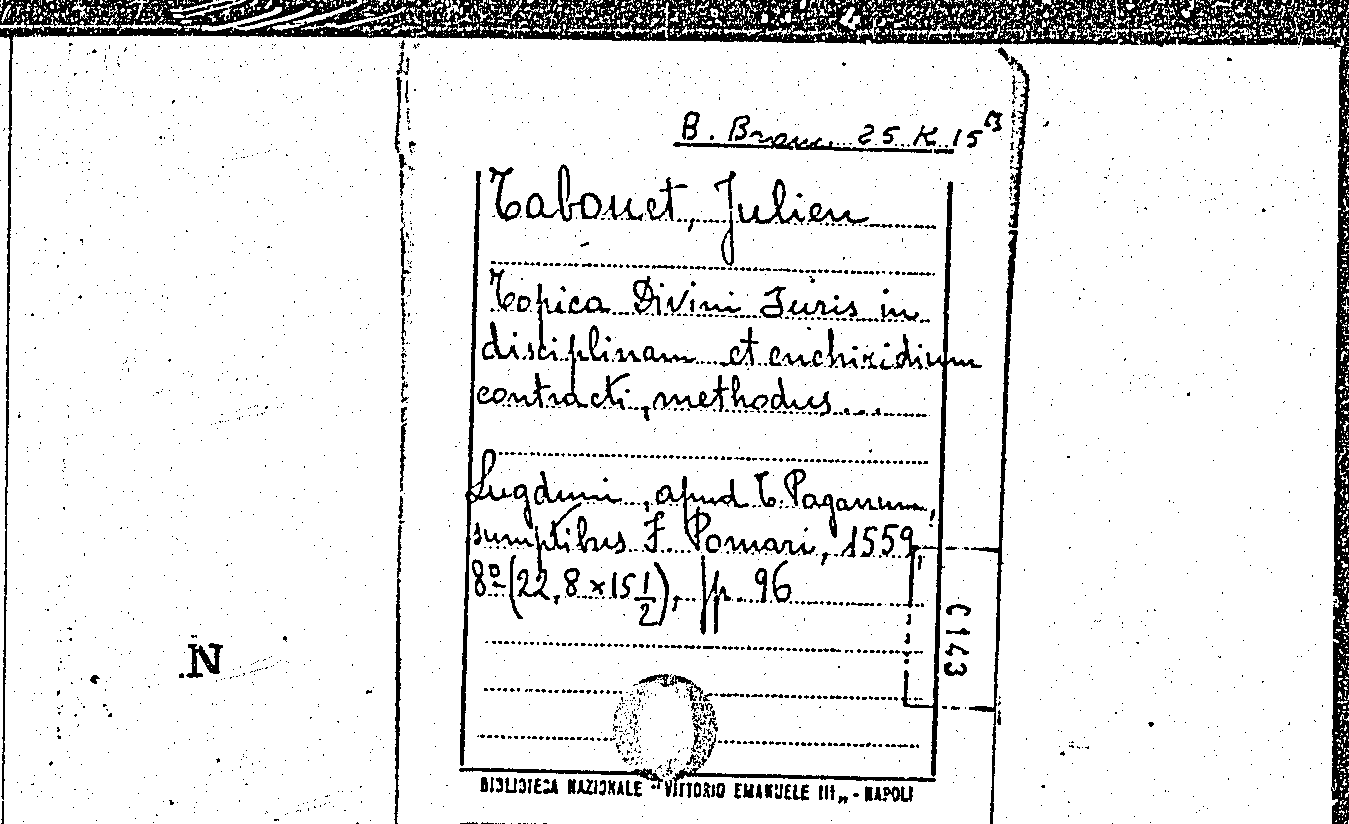 B. Branc. 25 K 15 B
Tabouet, Julien
Topica Divini Juris in
disciplinam et enchiridium
contracti, methodus...
Lugduni, apud T. Paganum,
sumptibus F. Pomari, 1559,
8º (22,8 × 15 1/2), pp. 96
C143
.N
BIBLIOTECA NAZIONALE "VITTORIO EMANUELE III„ - NAPOLI